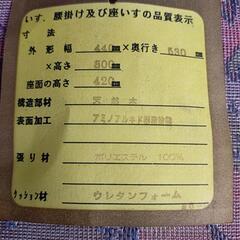 いす、腰掛け及び座いすの品質表示
寸法
外形幅 440mm×奥行き530mm
×高さ 800mm
座面の高さ 420mm
構造部材 天然木
表面加工 アミノアルキド樹脂塗装
張り材 ポリエステル 100%
クッション材 ウレタンフォーム